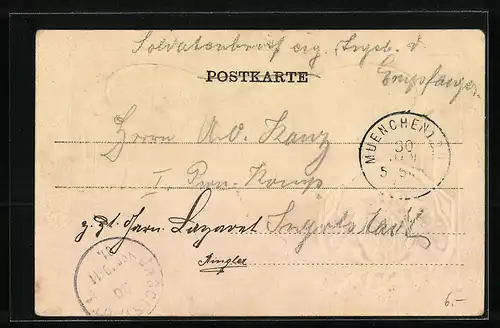 Soldatenbrief eig. Angel. d.
Empfänger.
POSTKARTE
Herrn A. V. Kanz
I. Pion. Komp
z. Zt. Garn. Lazaret Ingolstadt
Ringler
MUENCHEN
30
JUN
5
6.-